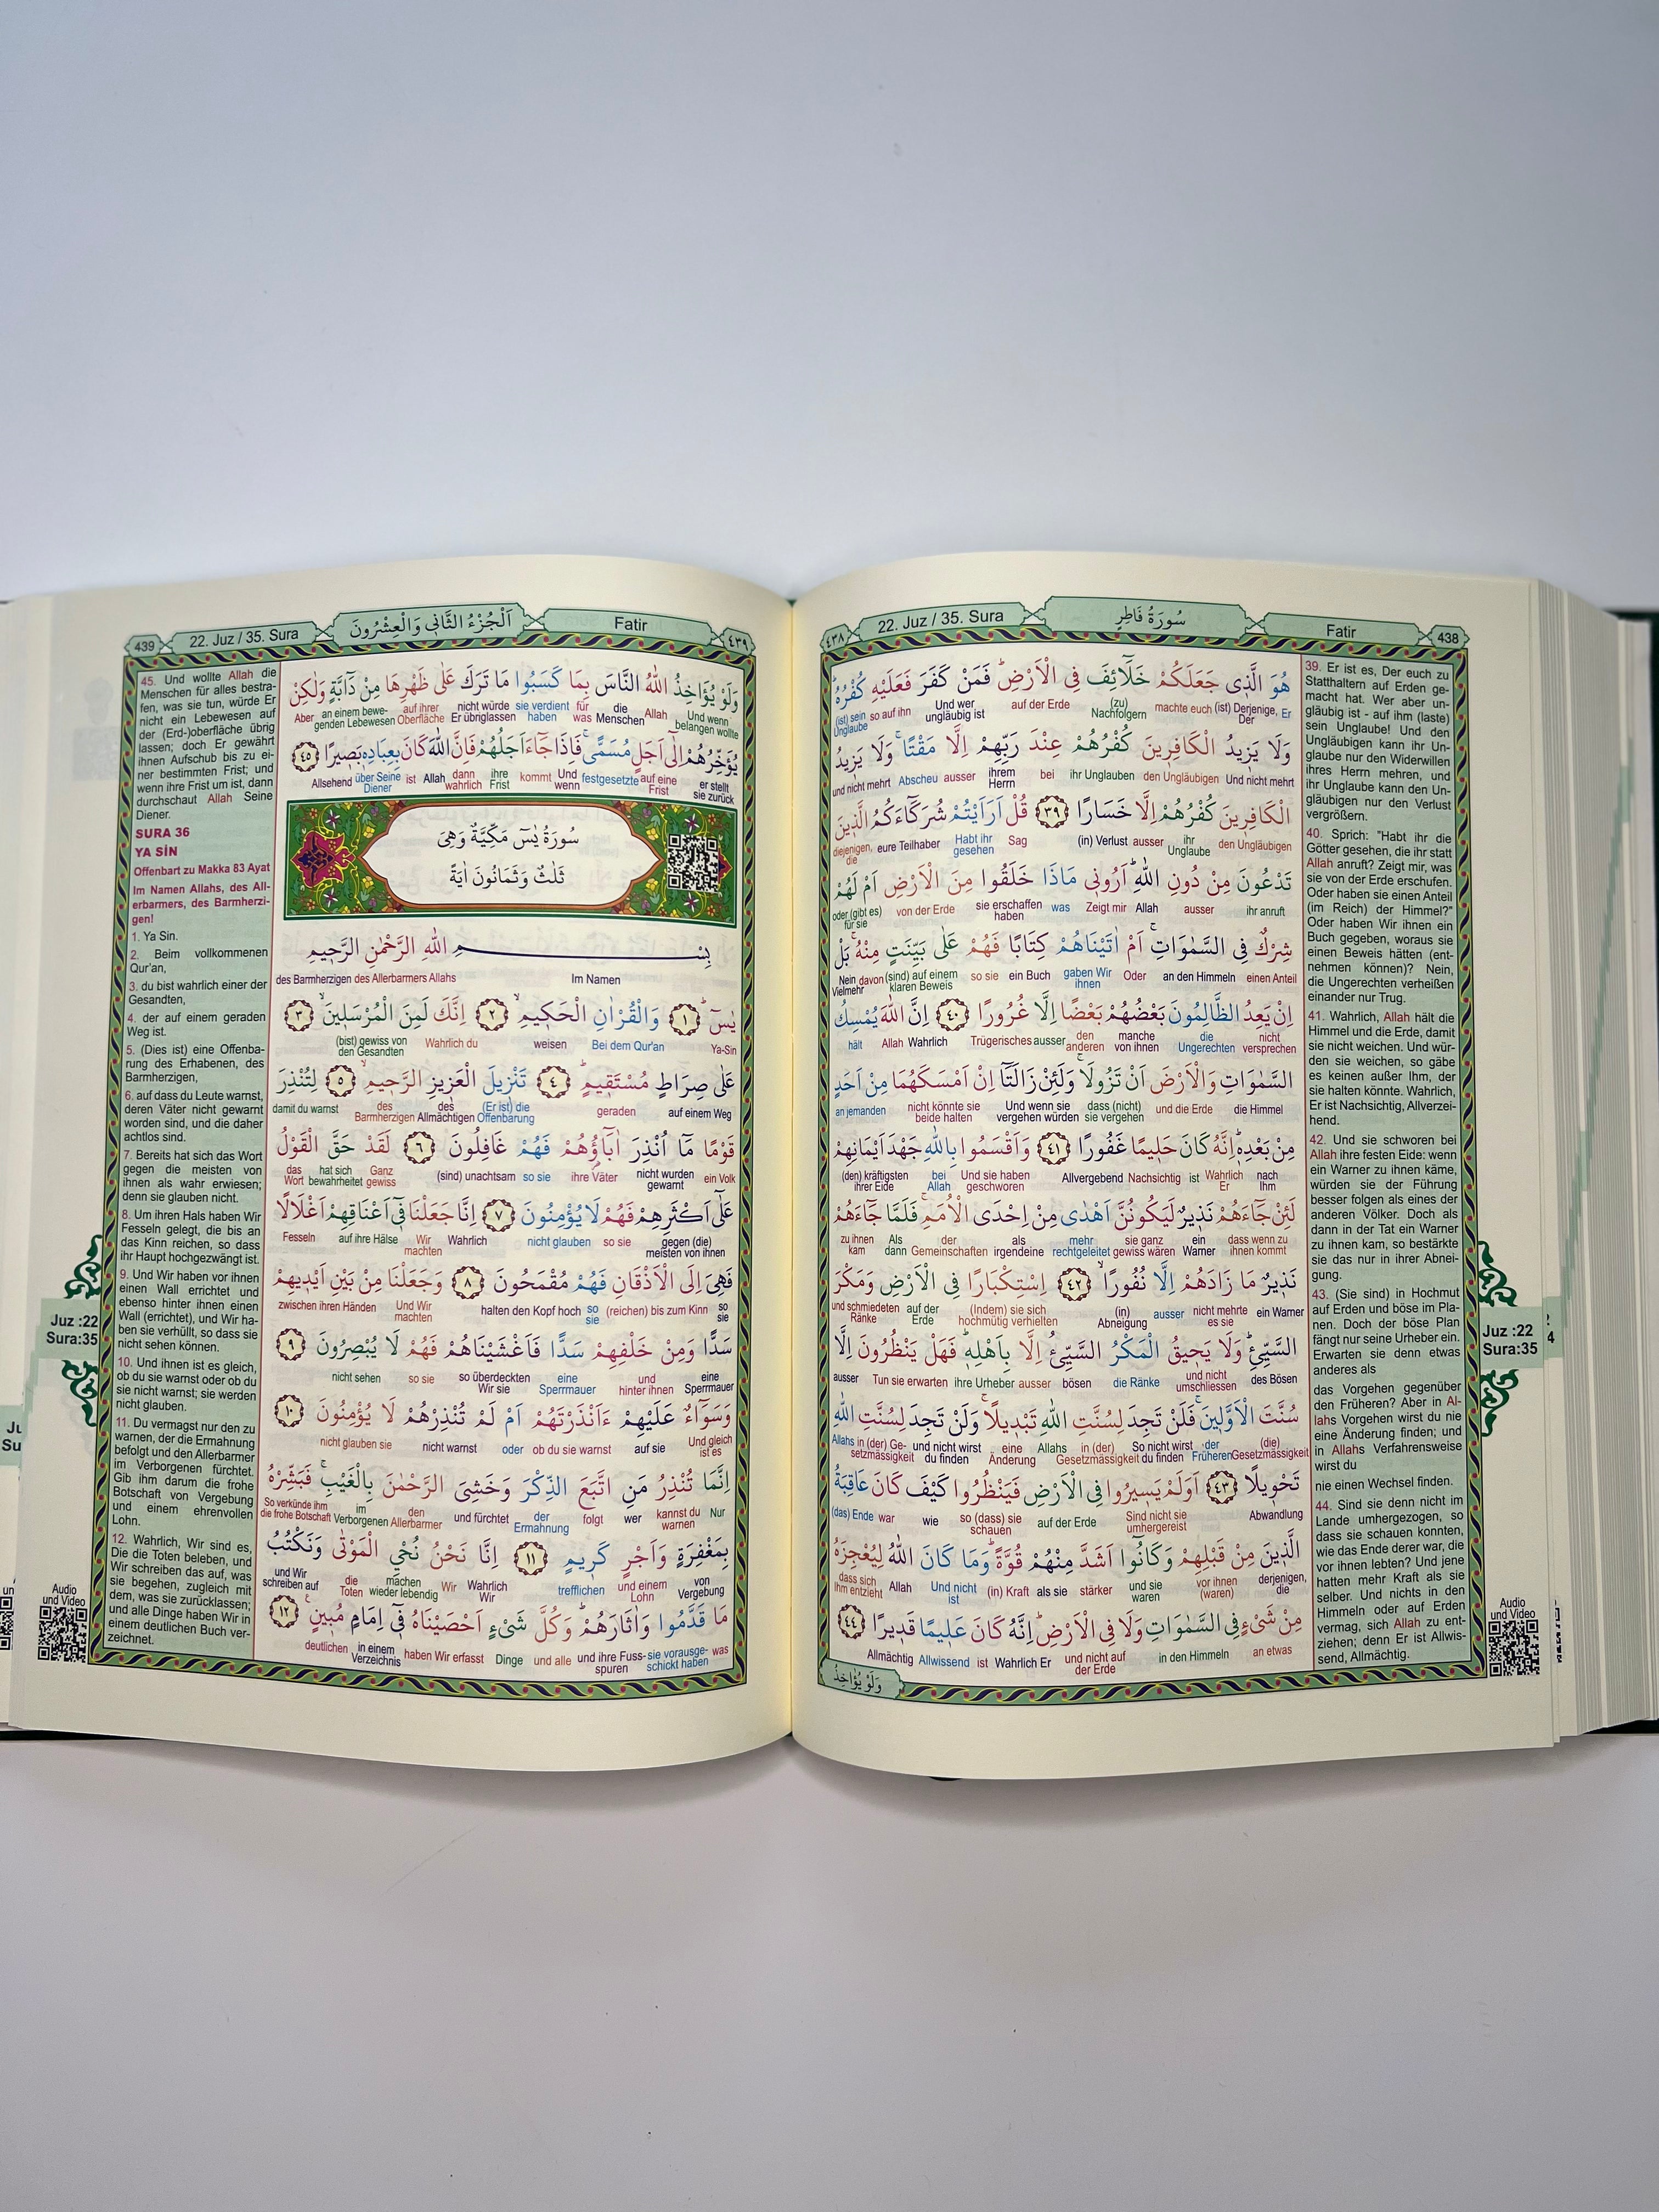 ٤٣٨
22. Juz / 35. Sura
سُورَةُ فَاطِرٍ
Fatir
438
هُوَ الَّذ۪ي جَعَلَكُمْ خَلَٓائِفَ فِي الْاَرْضِۜ فَمَنْ كَفَرَ فَعَلَيْهِ كُفْرُهُۜ
(ist) sein Unglaube so auf ihn Und wer ungläubig ist auf der Erde (zu) Nachfolgern machte euch (ist) Derjenige, Der Er
وَلَا يَز۪يدُ الْكَافِر۪ينَ كُفْرُهُمْ عِنْدَ رَبِّهِمْ اِلَّا مَقْتًاۚ وَلَا يَز۪يدُ
und nicht mehrt Abscheu ausser ihrem Herrn bei ihr Unglauben den Ungläubigen Und nicht mehrt
الْكَافِر۪ينَ كُفْرُهُمْ اِلَّا خَسَارًا ﴿٣٩﴾ قُلْ اَرَاَيْتُمْ شُرَكَٓاءَكُمُ الَّذ۪ينَ
diejenigen, die eure Teilhaber Habt ihr gesehen Sag (in) Verlust ausser ihr Unglaube den Ungläubigen
تَدْعُونَ مِنْ دُونِ اللّٰهِۜ اَرُون۪ي مَاذَا خَلَقُوا مِنَ الْاَرْضِ اَمْ لَهُمْ
oder (gibt es) für sie von der Erde sie erschaffen haben was Zeigt mir Allah ausser ihr anruft
شِرْكٌ فِي السَّمٰوَاتِۚ اَمْ اٰتَيْنَاهُمْ كِتَابًا فَهُمْ عَلٰى بَيِّنَتٍ مِنْهُۚ بَلْ
Nein Vielmehr davon (sind) auf einem klaren Beweis so sie ein Buch gaben Wir ihnen Oder an den Himmeln einen Anteil
اِنْ يَعِدُ الظَّالِمُونَ بَعْضُهُمْ بَعْضًا اِلَّا غُرُورًا ﴿٤٠﴾ اِنَّ اللّٰهَ يُمْسِكُ
hält Allah Wahrlich Trügerisches ausser den anderen manche von ihnen die Ungerechten nicht versprechen
السَّمٰوَاتِ وَالْاَرْضَ اَنْ تَزُولَاۚ وَلَئِنْ زَالَتَٓا اِنْ اَمْسَكَهُمَا مِنْ اَحَدٍ
an jemanden nicht könnte sie beide halten Und wenn sie vergehen würden dass (nicht) sie vergehen und die Erde die Himmel
مِنْ بَعْدِه۪ۜ اِنَّهُ كَانَ حَل۪يمًا غَفُورًا ﴿٤١﴾ وَاَقْسَمُوا بِاللّٰهِ جَهْدَ اَيْمَانِهِمْ
(den) kräftigsten ihrer Eide bei Allah Und sie haben geschworen Allvergebend Nachsichtig ist Wahrlich Er nach Ihm
لَئِنْ جَٓاءَهُمْ نَذ۪يرٌ لَيَكُونُنَّ اَهْدٰى مِنْ اِحْدَى الْاُمَمِۚ فَلَمَّا جَٓاءَهُمْ
zu ihnen kam Als dann der Gemeinschaften als irgendeine mehr rechtgeleitet sie ganz gewiss wären ein Warner dass wenn zu ihnen kommt
نَذ۪يرٌ مَا زَادَهُمْ اِلَّا نُفُورًاۙ ﴿٤٢﴾ اِسْتِكْبَارًا فِي الْاَرْضِ وَمَكْرَ
und schmiedeten Ränke auf der Erde (Indem) sie sich hochmütig verhielten (in) Abneigung ausser nicht mehrte es sie ein Warner
السَّيِّئِۜ وَلَا يَح۪يقُ الْمَكْرُ السَّيِّئُ اِلَّا بِاَهْلِه۪ۜ فَهَلْ يَنْظُرُونَ اِلَّا
ausser Tun sie erwarten ihre Urheber ausser bösen die Ränke und nicht umschliessen des Bösen
سُنَّتَ الْاَوَّل۪ينَۚ فَلَنْ تَجِدَ لِسُنَّتِ اللّٰهِ تَبْد۪يلًاۚ وَلَنْ تَجِدَ لِسُنَّتِ اللّٰهِ
Allahs in (der) Gesetzmässigkeit und nicht wirst du finden eine Änderung Allahs in (der) Gesetzmässigkeit So nicht wirst du finden der Früheren (die) Gesetzmässigkeit
تَحْو۪يلًا ﴿٤٣﴾ اَوَلَمْ يَس۪يرُوا فِي الْاَرْضِ فَيَنْظُرُوا كَيْفَ كَانَ عَاقِبَةُ
(das) Ende war wie so (dass) sie schauen auf der Erde Sind nicht sie umhergereist Abwandlung
الَّذ۪ينَ مِنْ قَبْلِهِمْ وَكَانُٓوا اَشَدَّ مِنْهُمْ قُوَّةًۜ وَمَا كَانَ اللّٰهُ لِيُعْجِزَهُ
dass sich Ihm entzieht Allah Und nicht ist (in) Kraft als sie stärker und sie waren vor ihnen (waren) derjenigen, die
مِنْ شَيْءٍ فِي السَّمٰوَاتِ وَلَا فِي الْاَرْضِۜ اِنَّهُ كَانَ عَل۪يمًا قَد۪يرًا ﴿٤٤﴾
Allmächtig Allwissend ist Wahrlich Er und nicht auf der Erde in den Himmeln an etwas
وَلَوْ يُؤَاخِذُ
39. Er ist es, Der euch zu
Statthaltern auf Erden ge-
macht hat. Wer aber un-
gläubig ist - auf ihm (laste)
sein Unglaube! Und den
Ungläubigen kann ihr Un-
glaube nur den Widerwillen
ihres Herrn mehren, und
ihr Unglaube kann den Un-
gläubigen nur den Verlust
vergrößern.
40. Sprich: "Habt ihr die
Götter gesehen, die ihr statt
Allah anruft? Zeigt mir, was
sie von der Erde erschufen.
Oder haben sie einen Anteil
(im Reich) der Himmel?"
Oder haben Wir ihnen ein
Buch gegeben, woraus sie
einen Beweis hätten (ent-
nehmen können)? Nein,
die Ungerechten verheißen
einander nur Trug.
41. Wahrlich, Allah hält die
Himmel und die Erde, damit
sie nicht weichen. Und wür-
den sie weichen, so gäbe
es keinen außer Ihm, der
sie halten könnte. Wahrlich,
Er ist Nachsichtig, Allverzei-
hend.
42. Und sie schworen bei
Allah ihre festen Eide: wenn
ein Warner zu ihnen käme,
würden sie der Führung
besser folgen als eines der
anderen Völker. Doch als
dann in der Tat ein Warner
zu ihnen kam, so bestärkte
sie das nur in ihrer Abnei-
gung.
43. (Sie sind) in Hochmut
auf Erden und böse im Pla-
nen. Doch der böse Plan
fängt nur seine Urheber ein.
Erwarten sie denn etwas
anderes als
das Vorgehen gegenüber
den Früheren? Aber in Al-
lahs Vorgehen wirst du nie
eine Änderung finden; und
in Allahs Verfahrensweise
wirst du
nie einen Wechsel finden.
44. Sind sie denn nicht im
Lande umhergezogen, so
dass sie schauen konnten,
wie das Ende derer war, die
vor ihnen lebten? Und jene
hatten mehr Kraft als sie
selber. Und nichts in den
Himmeln oder auf Erden
vermag, sich Allah zu ent-
ziehen; denn Er ist Allwis-
send, Allmächtig.
Juz :22
Sura:35
Audio
und Video
439
22. Juz / 35. Sura
اَلْجُزْءُ الثَّانِي وَالْعِشْرُونَ
Fatir
٤٣٩
وَلَوْ يُؤَاخِذُ اللّٰهُ النَّاسَ بِمَا كَسَبُوا مَا تَرَكَ عَلٰى ظَهْرِهَا مِنْ دَٓابَّةٍ وَلٰكِنْ
Aber an einem bewegenden Lebewesen auf ihrer Oberfläche nicht würde Er übriglassen sie verdient haben für was die Menschen Allah Und wenn belangen wollte
يُؤَخِّرُهُمْ اِلٰٓى اَجَلٍ مُسَمًّىۚ فَاِذَا جَٓاءَ اَجَلُهُمْ فَاِنَّ اللّٰهَ كَانَ بِعِبَادِه۪ بَص۪يرًا ﴿٤٥﴾
Allsehend über Seine Diener ist Allah dann wahrlich ihre Frist kommt Und wenn festgesetzte auf eine Frist er stellt sie zurück
سُورَةُ يٰسٓ مَكِّيَّةٌ وَهِيَ
ثَلٰثٌ وَثَمَانُونَ اٰيَةً
بِسْمِ اللّٰهِ الرَّحْمٰنِ الرَّح۪يمِ
des Barmherzigen des Allerbarmers Allahs Im Namen
يٰسٓۜ ﴿١﴾ وَالْقُرْاٰنِ الْحَك۪يمِۙ ﴿٢﴾ اِنَّكَ لَمِنَ الْمُرْسَل۪ينَۙ ﴿٣﴾
(bist) gewiss von den Gesandten Wahrlich du weisen Bei dem Qur'an Ya-Sin
عَلٰى صِرَاطٍ مُسْتَق۪يمٍۜ ﴿٤﴾ تَنْز۪يلَ الْعَز۪يزِ الرَّح۪يمِۙ ﴿٥﴾ لِتُنْذِرَ
damit du warnst des Barmherzigen des Allmächtigen (Er ist) die Offenbarung geraden auf einem Weg
قَوْمًا مَٓا اُنْذِرَ اٰبَٓاؤُهُمْ فَهُمْ غَافِلُونَ ﴿٦﴾ لَقَدْ حَقَّ الْقَوْلُ
das Wort hat sich bewahrheitet Ganz gewiss (sind) unachtsam so sie ihre Väter nicht wurden gewarnt ein Volk
عَلٰٓى اَكْثَرِهِمْ فَهُمْ لَا يُؤْمِنُونَ ﴿٧﴾ اِنَّا جَعَلْنَا ف۪ٓي اَعْنَاقِهِمْ اَغْلَالًا
Fesseln auf ihre Hälse Wir machten Wahrlich nicht glauben so sie gegen (die) meisten von ihnen
فَهِيَ اِلَى الْاَذْقَانِ فَهُمْ مُقْمَحُونَ ﴿٨﴾ وَجَعَلْنَا مِنْ بَيْنِ اَيْد۪يهِمْ
zwischen ihren Händen Und Wir machten halten den Kopf hoch so sie (reichen) bis zum Kinn so sie
سَدًّا وَمِنْ خَلْفِهِمْ سَدًّا فَاَغْشَيْنَاهُمْ فَهُمْ لَا يُبْصِرُونَ ﴿٩﴾
nicht sehen so sie so überdeckten Wir sie eine Sperrmauer und hinter ihnen eine Sperrmauer
وَسَوَٓاءٌ عَلَيْهِمْ ءَاَنْذَرْتَهُمْ اَمْ لَمْ تُنْذِرْهُمْ لَا يُؤْمِنُونَ ﴿١٠﴾
nicht glauben sie nicht warnst oder ob du sie warnst auf sie Und gleich ist es
اِنَّمَا تُنْذِرُ مَنِ اتَّبَعَ الذِّكْرَ وَخَشِيَ الرَّحْمٰنَ بِالْغَيْبِۚ فَبَشِّرْهُ
So verkünde ihm die frohe Botschaft im Verborgenen den Allerbarmer und fürchtet der Ermahnung folgt wer kannst du warnen Nur
بِمَغْفِرَةٍ وَاَجْرٍ كَر۪يمٍ ﴿١١﴾ اِنَّا نَحْنُ نُحْيِ الْمَوْتٰى وَنَكْتُبُ
und Wir schreiben auf die Toten machen wieder lebendig Wir Wahrlich Wir trefflichen und einem Lohn von Vergebung
مَا قَدَّمُوا وَاٰثَارَهُمْۜ وَكُلَّ شَيْءٍ اَحْصَيْنَاهُ ف۪ٓي اِمَامٍ مُب۪ينٍ۟ ﴿١٢﴾
deutlichen in einem Verzeichnis haben Wir erfasst Dinge und alle und ihre Fussspuren sie vorausgeschickt haben was
45. Und wollte Allah die
Menschen für alles bestra-
fen, was sie tun, würde Er
nicht ein Lebewesen auf
der (Erd-)oberfläche übrig
lassen; doch Er gewährt
ihnen Aufschub bis zu ei-
ner bestimmten Frist; und
wenn ihre Frist um ist, dann
durchschaut Allah Seine
Diener.
SURA 36
YA SİN
Offenbart zu Makka 83 Ayat
Im Namen Allahs, des All-
erbarmers, des Barmherzi-
gen!
1. Ya Sin.
2. Beim vollkommenen
Qur'an,
3. du bist wahrlich einer der
Gesandten,
4. der auf einem geraden
Weg ist.
5. (Dies ist) eine Offenba-
rung des Erhabenen, des
Barmherzigen,
6. auf dass du Leute warnst,
deren Väter nicht gewarnt
worden sind, und die daher
achtlos sind.
7. Bereits hat sich das Wort
gegen die meisten von
ihnen als wahr erwiesen;
denn sie glauben nicht.
8. Um ihren Hals haben Wir
Fesseln gelegt, die bis an
das Kinn reichen, so dass
ihr Haupt hochgezwängt ist.
9. Und Wir haben vor ihnen
einen Wall errichtet und
ebenso hinter ihnen einen
Wall (errichtet), und Wir ha-
ben sie verhüllt, so dass sie
nicht sehen können.
10. Und ihnen ist es gleich,
ob du sie warnst oder ob du
sie nicht warnst; sie werden
nicht glauben.
11. Du vermagst nur den zu
warnen, der die Ermahnung
befolgt und den Allerbarmer
im Verborgenen fürchtet.
Gib ihm darum die frohe
Botschaft von Vergebung
und einem ehrenvollen
Lohn.
12. Wahrlich, Wir sind es,
Die die Toten beleben, und
Wir schreiben das auf, was
sie begehen, zugleich mit
dem, was sie zurücklassen;
und alle Dinge haben Wir in
einem deutlichen Buch ver-
zeichnet.
Juz :22
Sura:35
Audio
und Video